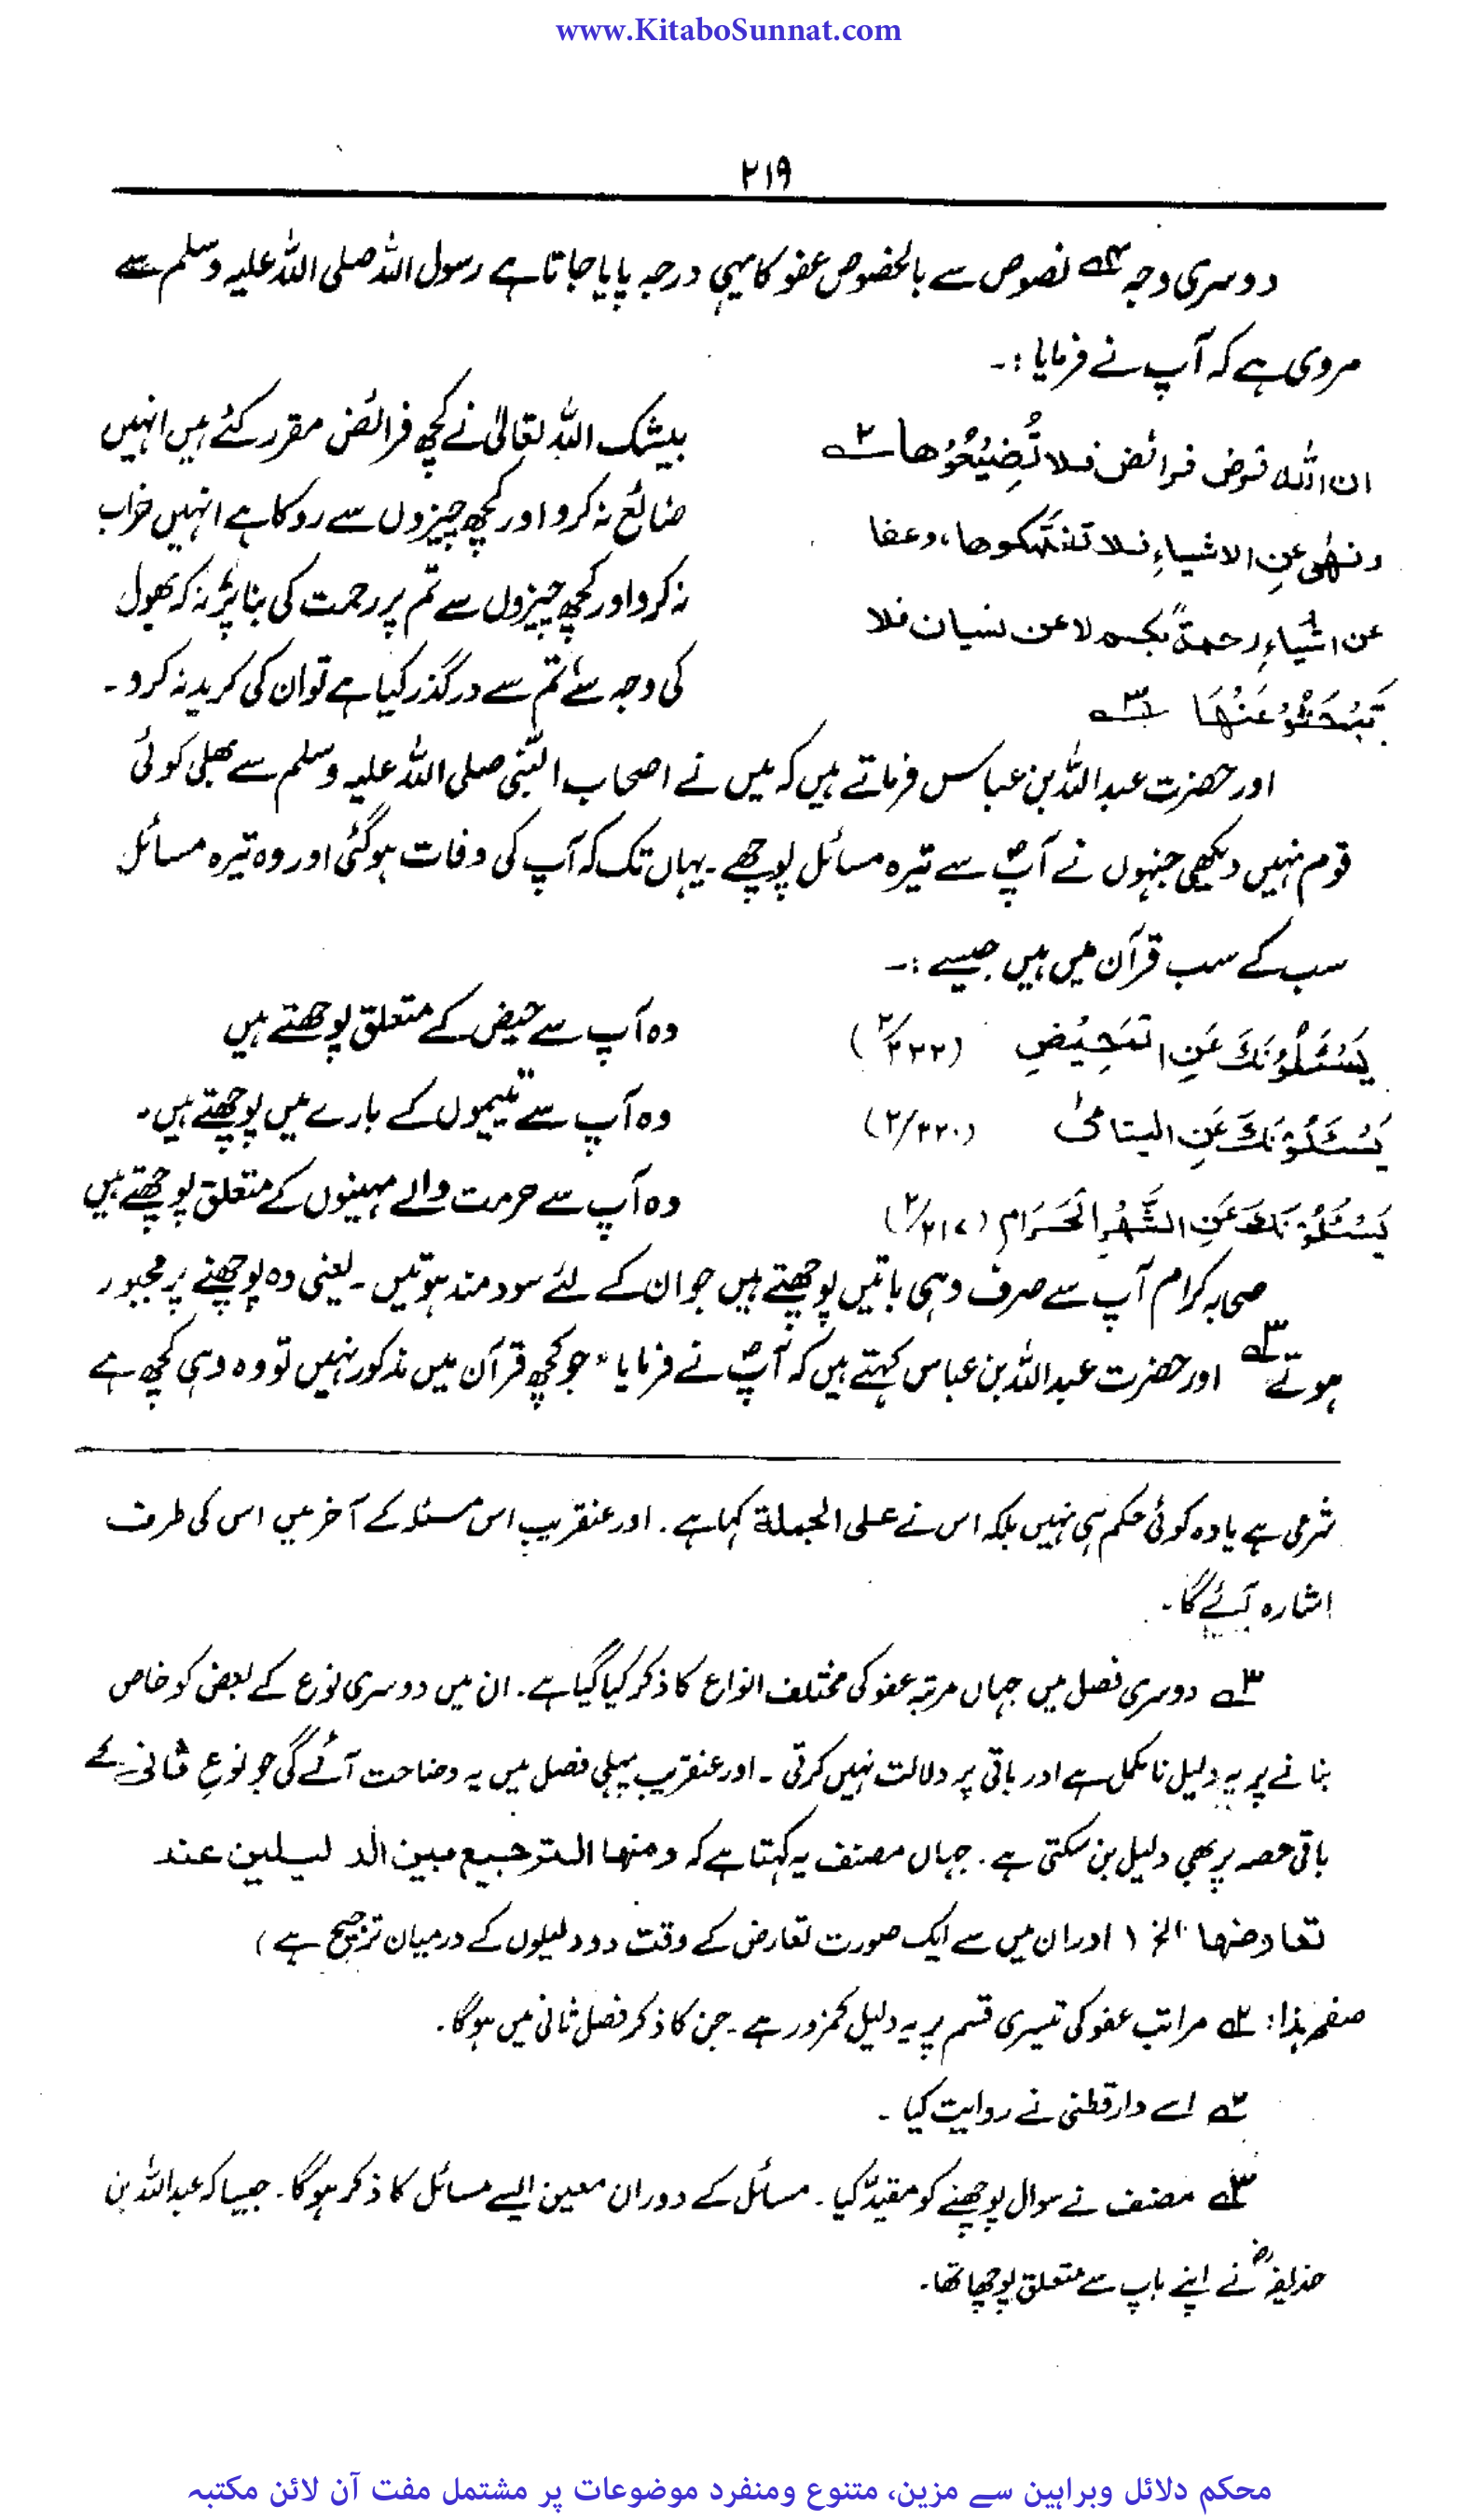 www.KitaboSunnat.com
۲۱۹
دوسری وجہ ۱ نصوص سے بالخصوص عفو کا یہی درجہ پایا جاتا ہے رسول اللہ صلی اللہ علیہ وسلم سے
مروی ہے کہ آپ نے فرمایا :۔
ان اللہ فرض فرائض فلا تُضِیْعُوْھا ۲
بیشک اللہ تعالیٰ نے کچھ فرائض مقرر کئے ہیں انہیں
ونھٰی عنِ الاشیاءِ فلا تنتھکوھا، وعفا
ضائع نہ کرو اور کچھ چیزوں سے روکا ہے انہیں خراب
عن اشیاءِ رحمةً بکم لا عن نسیان فلا
نہ کرو اور کچھ چیزوں سے تم پر رحمت کی بنا پر نہ کہ بھول
تَبْحَثُوْ عَنْھَا ۳
کی وجہ سے تم سے درگذر کیا ہے تو ان کی کرید نہ کرو۔
اور حضرت عبداللہ بن عباس فرماتے ہیں کہ میں نے اصحاب النبی صلی اللہ علیہ وسلم سے بھلی کوئی
قوم نہیں دیکھی جنہوں نے آپؐ سے تیرہ مسائل پوچھے۔ یہاں تک کہ آپ کی وفات ہو گئی اور وہ تیرہ مسائل
سب کے سب قرآن میں ہیں جیسے :۔
یَسْئَلُوْنَکَ عَنِ المَحِیْضِ (۲/۲۲۲)
وہ آپ سے حیض کے متعلق پوچھتے ہیں
یَسْئَلُوْنَکَ عَنِ الیتامیٰ (۲/۲۲۰)
وہ آپ سے یتیموں کے بارے میں پوچھتے ہیں۔
یَسْئَلُوْنَکَ عَنِ الشَّھْرِ الْحَرَامِ (۲/۲۱۷)
وہ آپ سے حرمت والے مہینوں کے متعلق پوچھتے ہیں
صحابہ کرام آپ سے صرف وہی باتیں پوچھتے ہیں جو ان کے لئے سود مند ہوتیں۔ یعنی وہ پوچھنے پر مجبور
ہوتے ۳ اور حضرت عبداللہ بن عباس کہتے ہیں کہ آپؐ نے فرمایا "جو کچھ قرآن میں مذکور نہیں تو وہ وہی کچھ ہے
شرعی ہے یا وہ کوئی حکم ہی نہیں بلکہ اس نے علی الجملة کہا ہے۔ اور عنقریب اس مسئلہ کے آخر میں اس کی طرف
اشارہ آئے گا۔
۳ دوسری فصل میں جہاں مرتبہ عفو کی مختلف انواع کا ذکر کیا گیا ہے۔ ان میں دوسری نوع کے بعض کو خاص
بنانے پر یہ دلیل نامکمل ہے اور باقی پر دلالت نہیں کرتی۔ اور عنقریب پہلی فصل میں یہ وضاحت آئے گی جو نوعِ ثانی کے
باقی حصہ پر بھی دلیل بن سکتی ہے۔ جہاں مصنف یہ کہتا ہے کہ ومنھا الترجیع مبین الدلیلین عند
تعارضھا الخ (اور ان میں سے ایک صورت تعارض کے وقت دو دلیلوں کے درمیان ترجیح ہے)
صفحہ ہذا: ۱ مراتب عفو کی تیسری قسم پر یہ دلیل کمزور ہے۔ جن کا ذکر فصل ثانی میں ہو گا۔
۲ اسے دارقطنی نے روایت کیا۔
۳ مصنف نے سوال پوچھنے کو مقید کیا۔ مسائل کے دوران معین ایسے مسائل کا ذکر ہو گا۔ جیسا کہ عبداللہ بن
حذیفہؓ نے اپنے باپ سے متعلق پوچھا تھا۔
محکم دلائل وبراہین سے مزین، متنوع ومنفرد موضوعات پر مشتمل مفت آن لائن مکتبہ